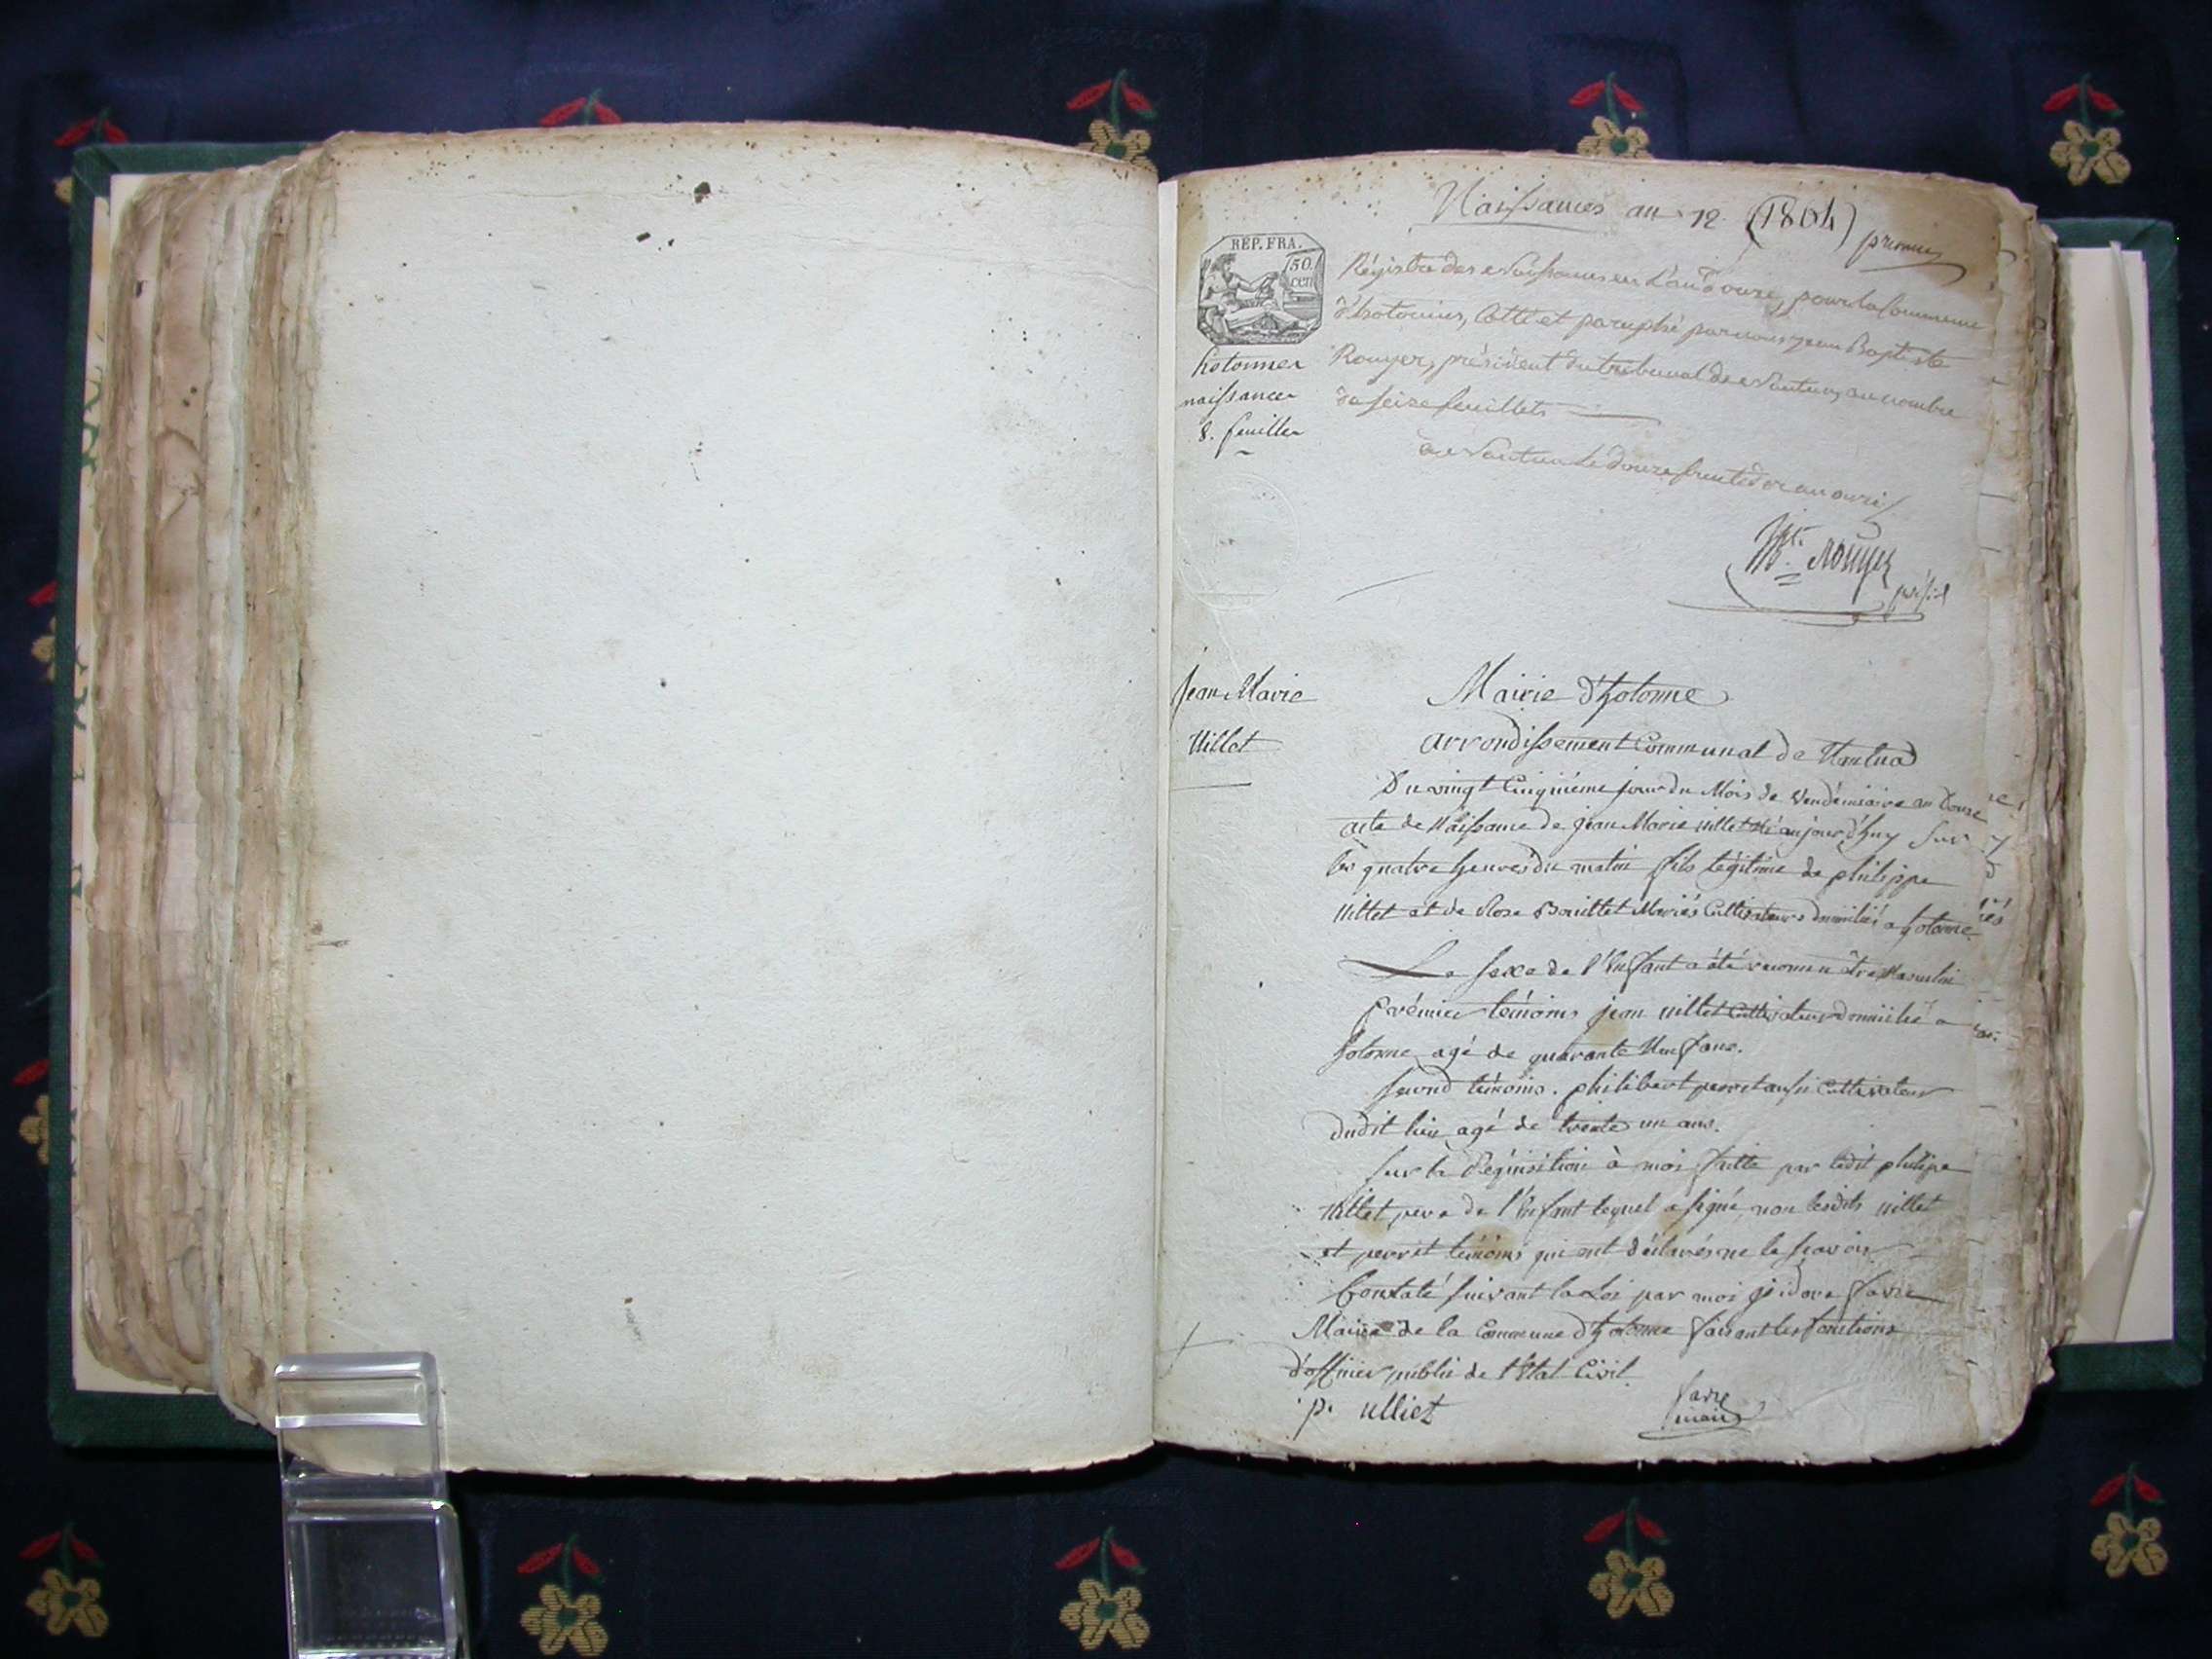 Naissances an 12 (1804)
premier
REP. FRA.
50
cen
hotonnes
naissances
8. feuilles
Régistre des Naissances en L'an Douze, pour la Commune
d'hotonnes, Cotté et paraphé par nous jean Baptiste
Rouyer, président du tribunal de Nantua, au nombre
de seize feuillets
a Nantua le Douze fructidor an onze
Rouyer
présid
Jean Marie
Uillet
Mairie d'hotonne
arrondissement Communal de Nantua
Du vingt Cinquiéme jour du Mois de Vendémiaire an Douze
acte de Naissance de jean Marie uillet Né aujourd'huy sur
les quatre heures du matin fils légitime de philippe
uillet et de Rose Bouillet Mariés Cultivateurs domiciliés a hotonne
Le sexe de l'Enfant a été reconnu être Masculin
prémier témoins jean uillet Cultivateur domicilié a
hotonne agé de quarante Neuf ans.
second témoins. philibert perret aussi Cultivateur
dudit lieu agé de trente un ans.
sur la Réquisition à moi faitte par ledit philipe
uillet pere de l'Enfant lequel a signé, non lesdits uillet
et perret témoins qui ont déclarés ne le savoir
Constaté suivant la Loi par moi isidore favre
Maire de la Commune d'hotonne faisant les fonctions
d'officier public de l'Etat Civil.
p. ulliet
favre
maire